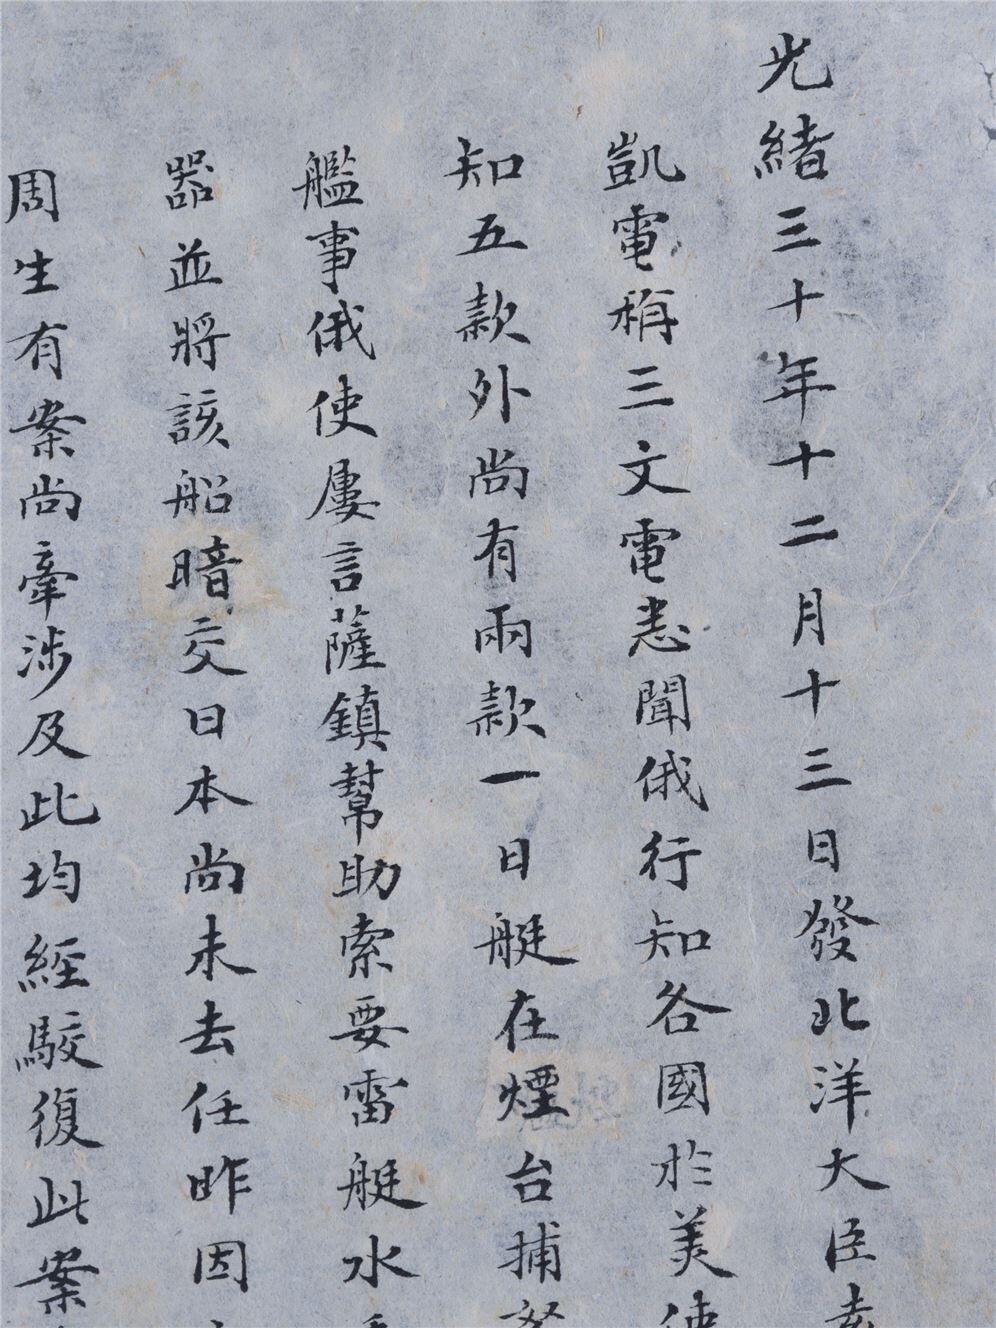 光緒三十年十二月十三日發北洋大臣袁
凱電稱三文電悉聞俄行知各國於美使
知五款外尚有兩款一日艇在煙台捕
艦事俄使屢言薩鎮幫助索要雷艇水
器並將該船暗交日本尚未去任昨因
周生有案尚牽涉及此均經駮復此案